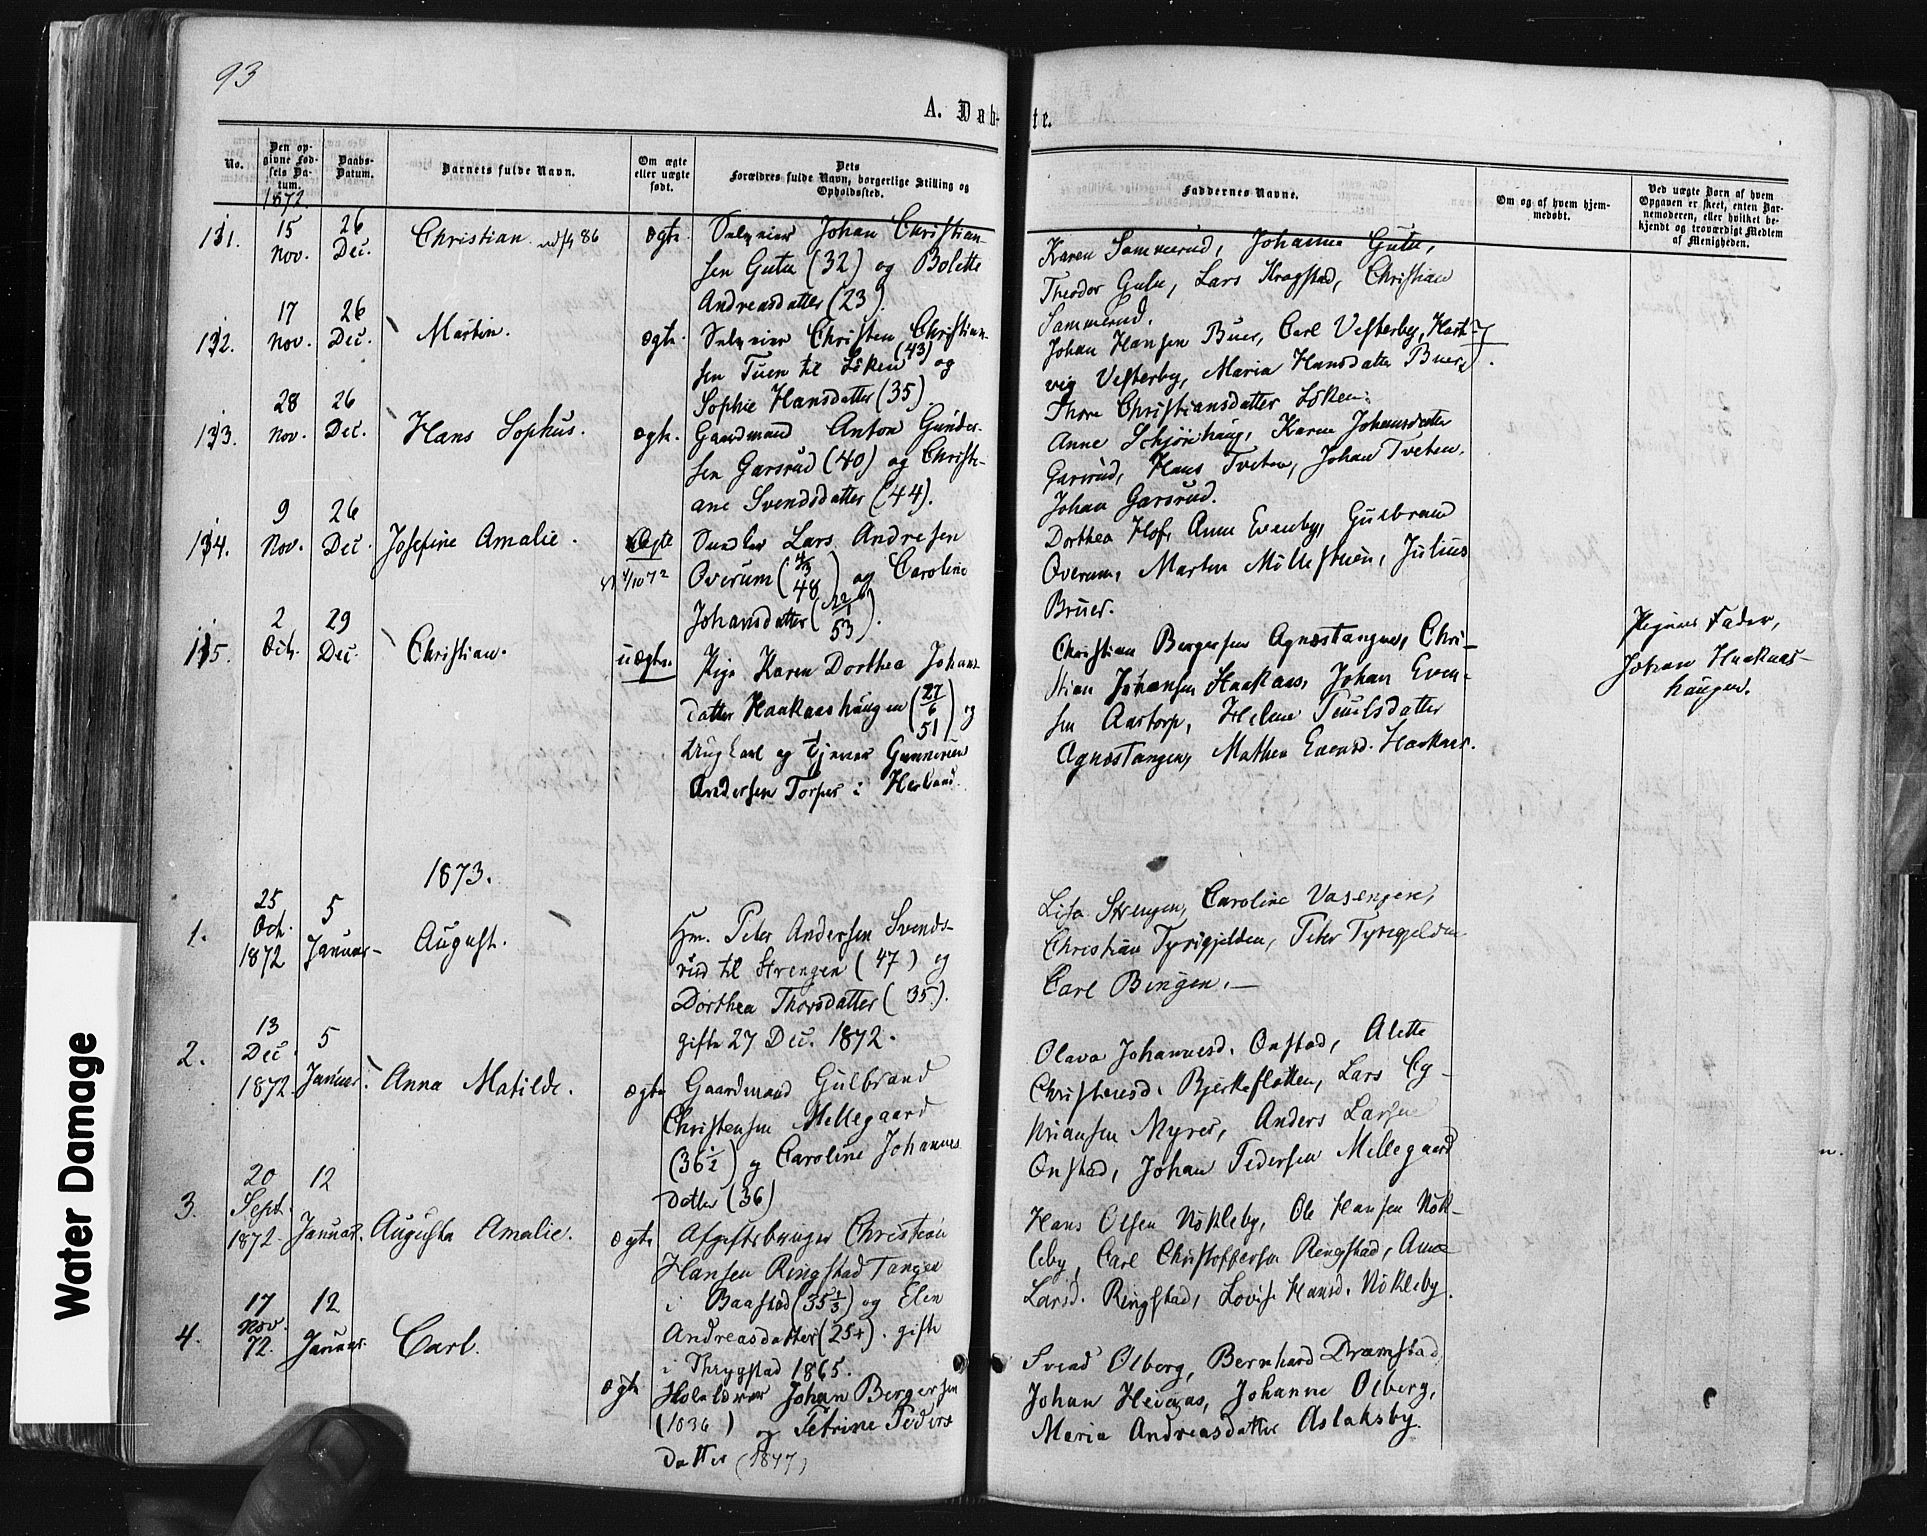 93
A. Døbte.
No.
Den op-
givne Fød-
sels Da-
tum.
1872.
Daabs-
Datum.
Barnets fulde Navn.
Om ægte
eller uægte
født.
Dets
Forældres fulde Navn, borgerlige Stilling og
Opholdssted.
Faddernes Navne.
Om og af hvem hjem-
medøbt.
Ved uægte Børn af hvem
Opgaven er skeet, enten Bar-
nemoderen, eller hvilket be-
kjendt og troværdigt Medlem
af Menigheden.
131.
15
Nov.
26
Dec.
Christian. 86
ægte.
Selveier Johan Christian-
sen Gutu (32) og Bolette
Andreasdatter (23).
Karen Sammerud, Johanne Gutu,
Theodor Gutu, Lars Kragstad, Christian
Sammerud.
132.
17
Nov.
26
Dec.
Martin.
ægte.
Selveier Christen Christian-
sen Tuen til Löken (43) og
Sophie Hansdatter (35).
Johan Hansen Buer, Carl Vesterby, Hart-
vig Vesterby, Maria Hansdatter Buer,
Thora Christiansdatter Löken.
133.
28
Nov.
26
Dec.
Hans Sophus.
ægte.
Gaardmand Anton Gunder-
sen Garsrud (40) og Christi-
ane Svendsdatter (44).
Anne Schjönhaug, Karen Johansdatter
Garsrud, Hans Tveten, Johan Tveten,
Johan Garsrud.
134.
9
Nov.
26
Dec.
Josefine Amalie.
ægte
4/10 72
Lars Andresen
Overum (4/3 48) og Caroline
Johansdatter (22/1 53).
Dorthea Hof, Anne Evenby, Gulbrand
Overum, Marten Möllestuen, Julius
Bruer.
135.
2
Oct.
29
Dec.
Christian.
uægte.
Pige Karen Dorthea Johans-
datter Haakaashaugen (27/6 51) og
Ungkarl og tjener Gunnerius
Andersen Torper i Herland.
Christian Bergersen Agnæstangen, Chri-
stian Johansen Haakaas, Johan Even-
sen Aastorp, Helene Poulsdatter
Agnæstangen, Mathea Evensd. Haakaas.
Pigens Fader,
Johan Haakaas-
haugen.
1873.
1.
25
Oct.
1872
5
Januar
August.
Hm. Peter Andersen Svends-
rud til Strengen (47) og
Dorthea Thorsdatter (35).
gifte 27 Dec. 1872.
Lisa Strengen, Caroline Vasengen,
Christian Tyrigjelden, Peter Tyrigjelden
Carl Bingen.
2.
13
Dec.
1872
5
Januar.
Anna Matilde.
ægte
Gaardmand Gulbrand
Christensen Mellegaard
(36½) og Caroline Johannes
datter (36)
Olava Johannesd. Onstad, Alette
Christensd. Bjerkefloten, Lars Cy-
priansen Myrer, Anders Larsen
Onstad, Johan Pedersen Mellegaard
3.
20
Sept.
1872.
12
Januar.
Augusta Amalie.
ægte
Afgiftsbruger Christian
Hansen Ringstad Tangen
i Baastad (35⅓) og Elen
Andreasdatter (25+). gifte
i Thrygstad 1865.
Hans Olsen Nökleby, Ole Hansen Nök-
leby, Carl Christoffersen Ringstad, Anne
Larsd. Ringstad, Lovise Hansd. Nökleby.
4.
17
Nov.
72.
12
Januar
Carl.
ægte
Johan Bergersen
(1836) og Petrine Peders
datter (1847)
Svend Olberg, Bernhard Dramstad,
Johan Olberg,
Maria Andreasdatter Aslaksby.
Water Damage